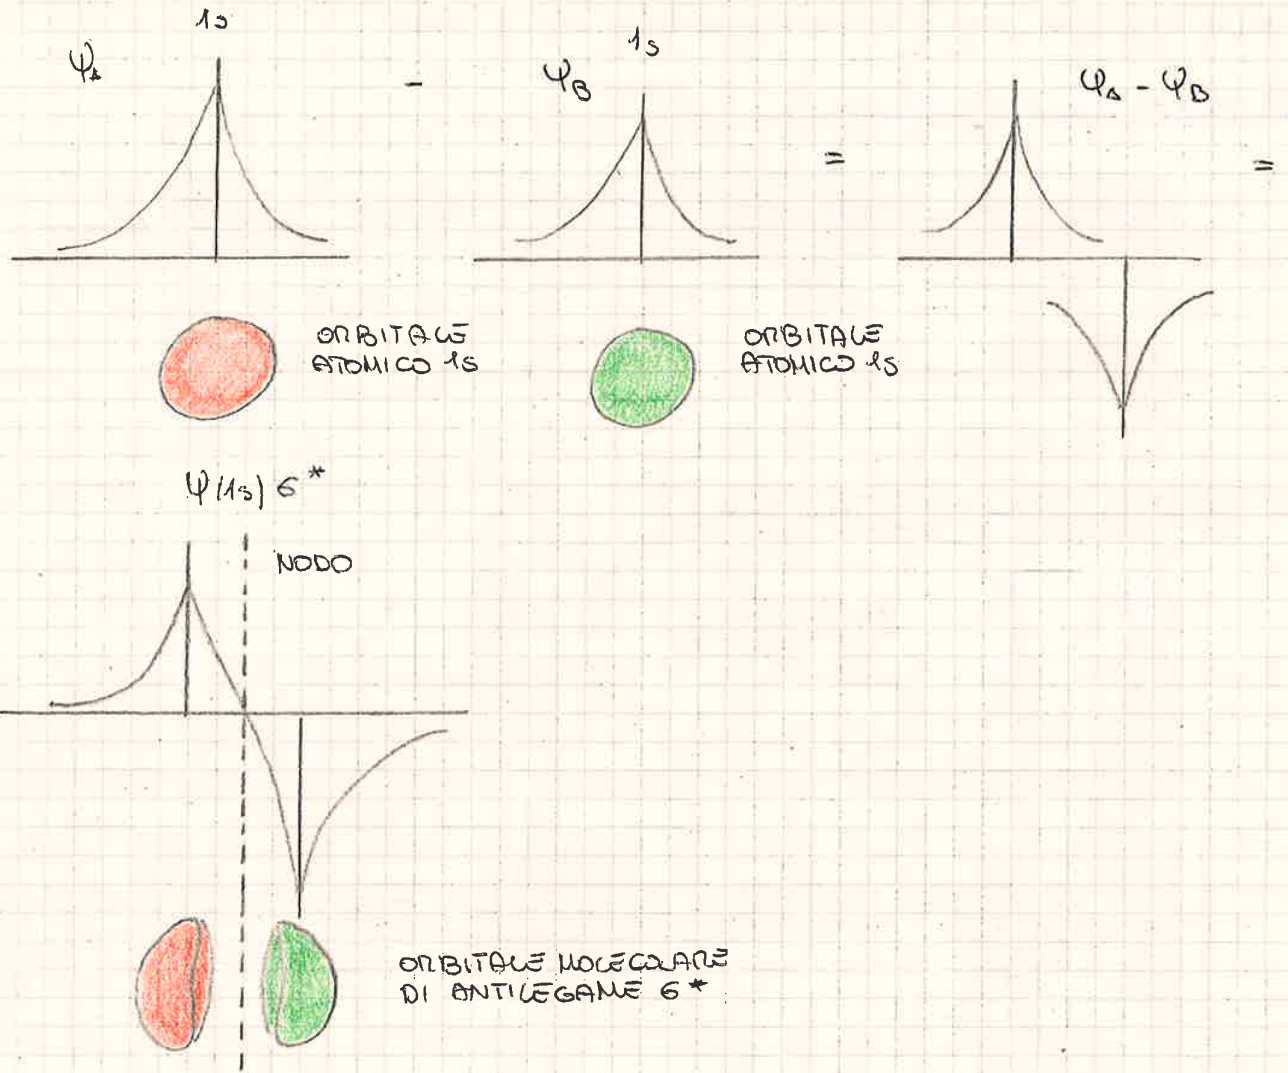 1s
1s
ΨA
-
ΨB
=
ΨA - ΨB
=
ORBITALE
ATOMICO 1s
ORBITALE
ATOMICO 1s
Ψ(1s) σ*
NODO
ORBITALE MOLECOLARE
DI ANTILEGAME σ*